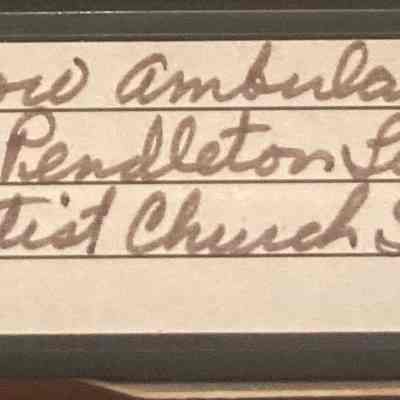 ow Ambula
Pendleton
tist Church S